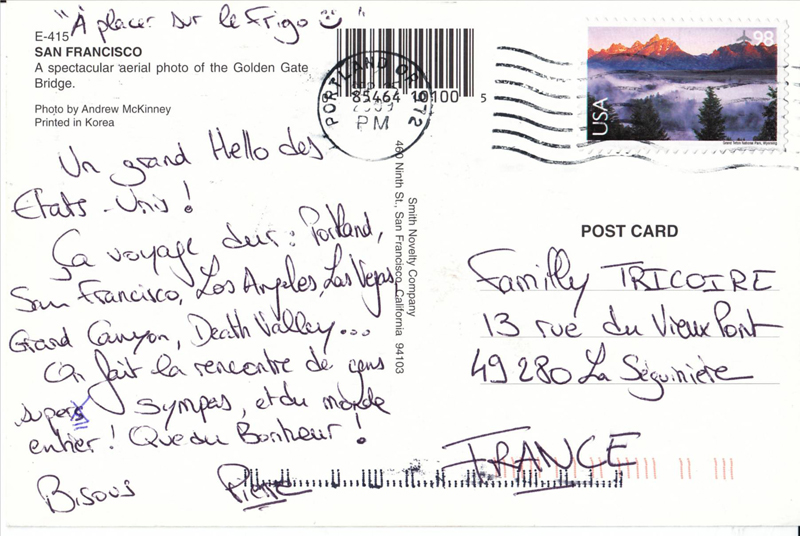 "À placer sur le Frigo
E-415
SAN FRANCISCO
A spectacular aerial photo of the Golden Gate
Bridge.
Photo by Andrew McKinney
Printed in Korea
Un grand Hello des
Etats-Unis !
Ça voyage dur : Portland,
San Francisco, Los Angeles, Las Vegas,
Grand Canyon, Death Valley...
On fait la rencontre de gens
supers sympas, et du monde
entier ! Que du Bonheur !
Bisous Pierre
PORTLAND OR 972
2009
PM
85464 10100 5
Smith Novelty Company
460 Ninth St., San Francisco, California 94103
98
USA
Grand Teton National Park, Wyoming
POST CARD
Familly TRICOIRE
13 rue du Vieux Pont
49280 La Séguinière
FRANCE